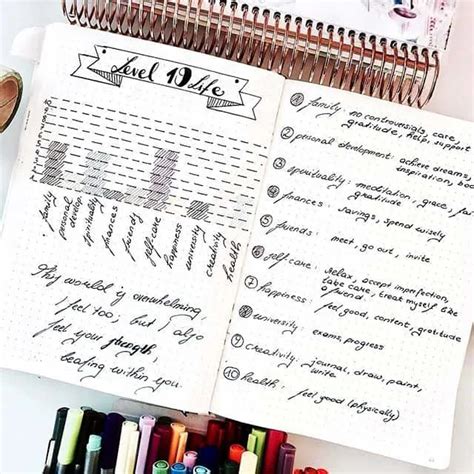 Level 10 Life
family
personal
develop.
spirituality
finances
friends
self-care
happiness
university
creativity
health
This world is overwhelming,
I feel too; but I also
feel your strength,
beading within you.
① family: no controversials, care,
gratitude, help, support
② personal development: achieve dreams,
inspiration,
③ spirituality: meditation, grace,
gratitude
④ finances: savings, spend wisely
⑤ friends: meet, go out, invite
⑥ self-care: relax, accept imperfection,
take care, treat myself like
a friend
⑦ happiness: feel good, content, gratitude
⑧ university: exams, progress
⑨ creativity: journal, draw, paint,
write
⑩ health: feel good (physically)